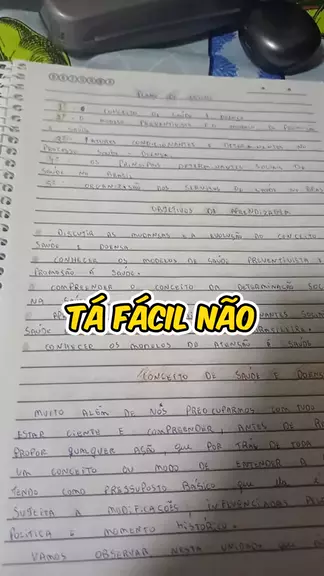 PLANO DE ESTUDO
1º O CONCEITO DE SAÚDE E DOENÇA
2º O MODELO PREVENTIVISTA E O MODELO DE PROMOÇÃO
À SAÚDE
3º FATORES CONDICIONANTES E DETERMINANTES DO
PROCESSO SAÚDE - DOENÇA
4º OS PRINCIPAIS DETERMINANTES SOCIAIS DA
SAÚDE NO BRASIL
5º ORGANIZAÇÃO DOS SERVIÇOS DE SAÚDE NO BRAS
OBJETIVOS DE APRENDIZAGEM
DISCUTIR AS MUDANÇAS E A EVOLUÇÃO DO CONCEITO
SAÚDE E DOENÇA
CONHECER OS MODELOS DE SAÚDE PREVENTIVISTA E
PROMOÇÃO À SAÚDE.
COMPREENDER O CONCEITO DA DETERMINAÇÃO SOC
NA
TÁ FÁCIL NÃO
CONHECER OS MODELOS DE ATENÇÃO À SAÚDE
CONCEITO DE SAÚDE E DOENÇ
MUITO ALÉM DE NÓS PREOCUPARMOS COM TUDO
ESTAR CIENTE E COMPREENDER, ANTES DE
PROPOR QUALQUER AÇÃO, QUE POR TRÁS DE TODA
UM CONCEITO OU MODO DE ENTENDER A
TENDO COMO PRESSUPOSTO BÁSICO QUE ELA É
SUJEITA A MODIFICAÇÕES, INFLUENCIADAS PELO
POLÍTICA E MOMENTO HISTÓRICO.
VAMOS OBSERVAR NESTA UNIDADE QUE